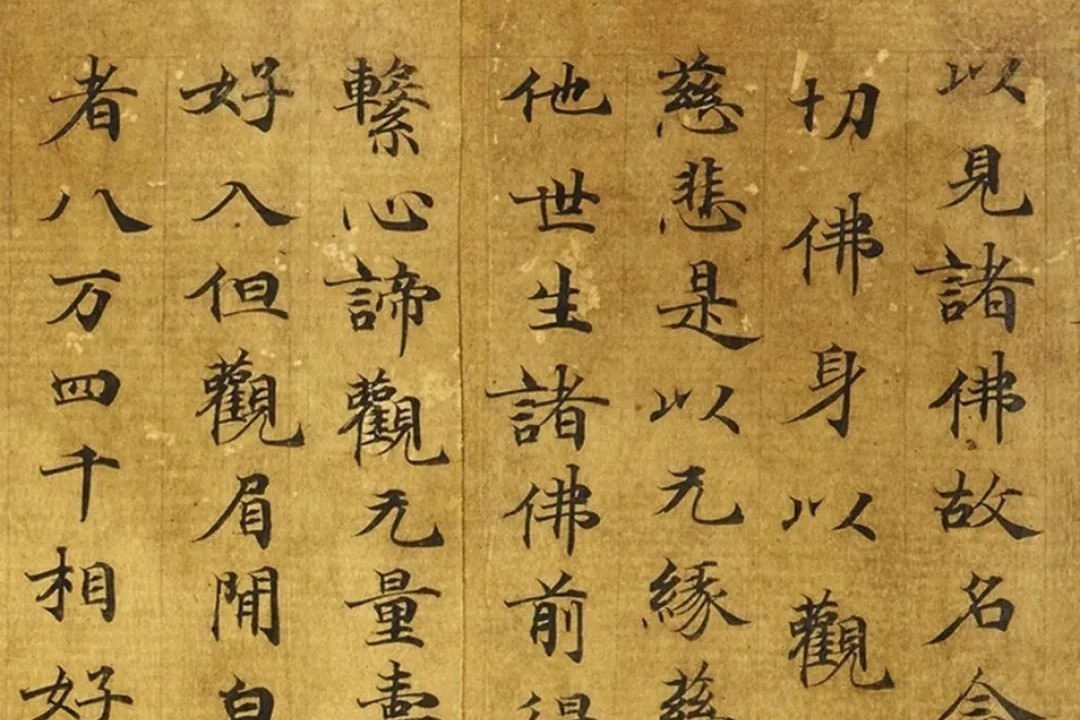 以見諸佛故名念
切佛身以觀
慈悲是以无緣慈
他世生諸佛前得
繫心諦觀无量壽
好入但觀眉間白
者八万四千相好